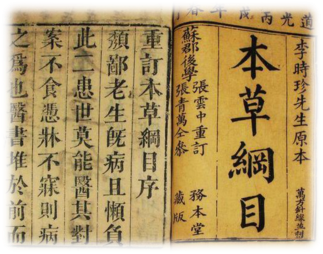 道光丙戌年春
李時珍先生原本
本草綱目
張雲中重訂
蘇郡後學
張青萬仝參
務本堂
藏版
萬方針線並刻
重訂本草綱目序
頹鄙老生旣病且懶負
此二患世莫能醫其對
案不食憑牀不寐則病
之爲也醫書堆於前而